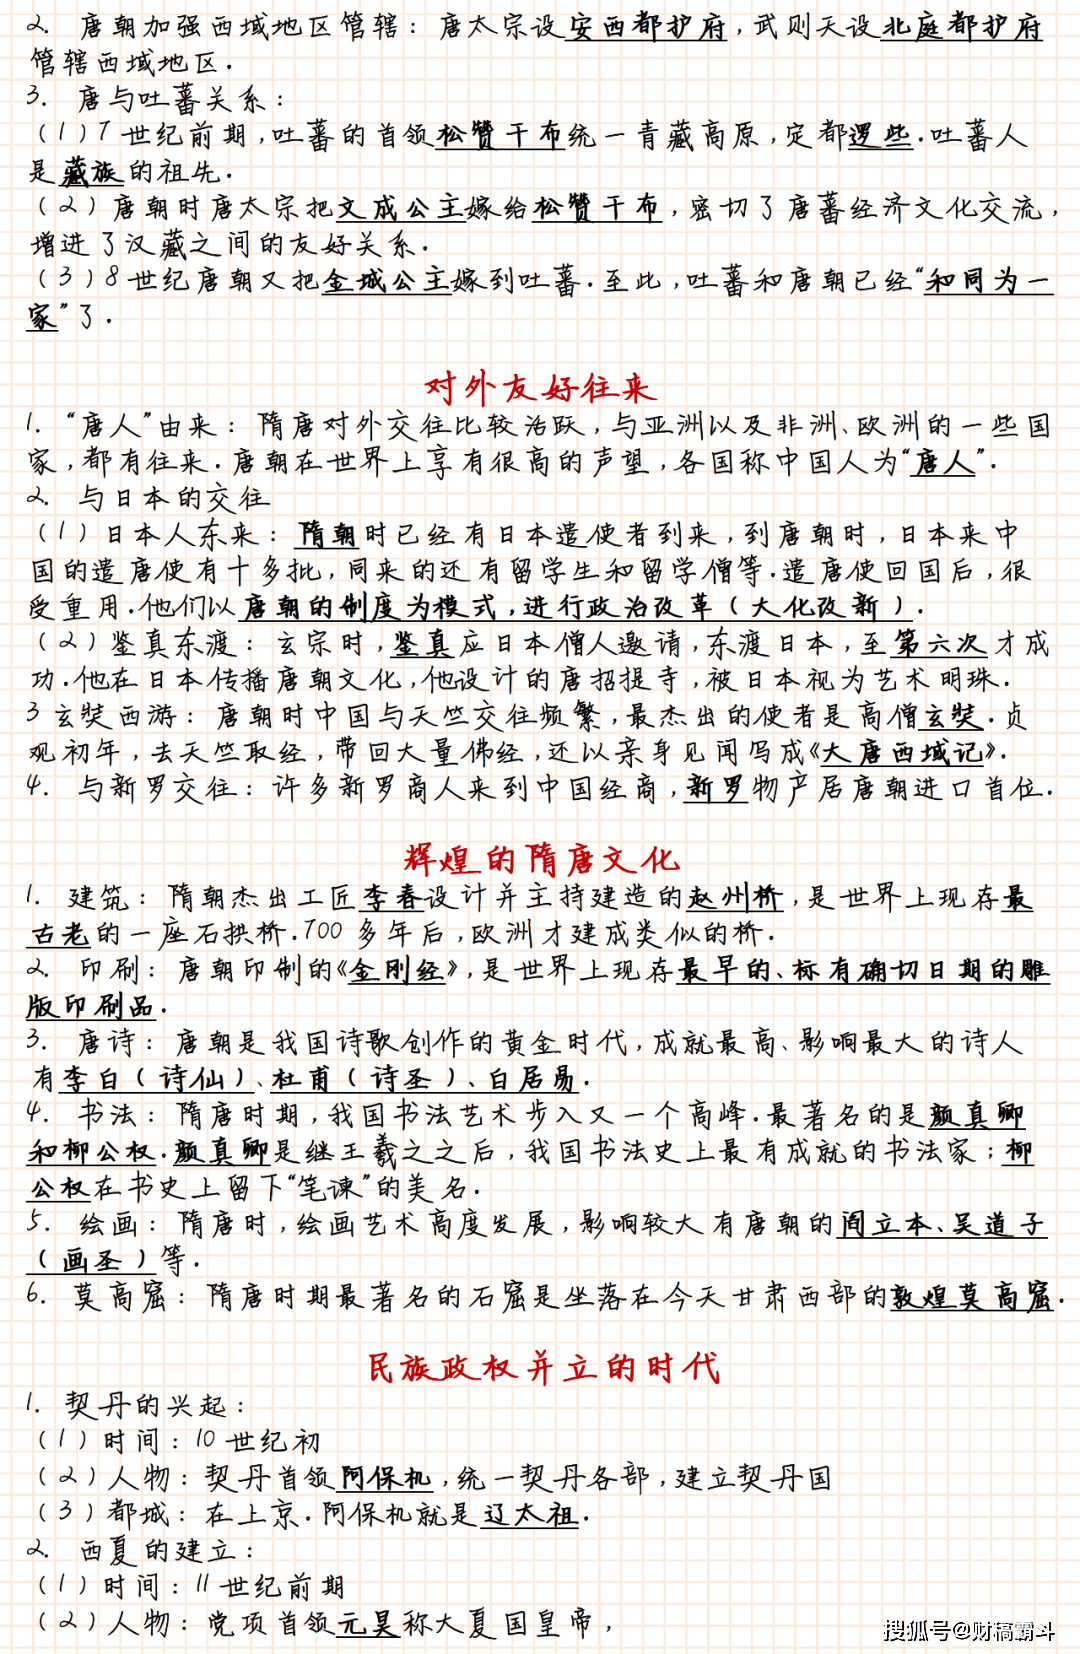 2. 唐朝加强西域地区管辖：唐太宗设安西都护府,武则天设北庭都护府
管辖西域地区.
3. 唐与吐蕃关系：
(1)7世纪前期,吐蕃的首领松赞干布统一青藏高原,定都逻些.吐蕃人
是藏族的祖先.
(2)唐朝时唐太宗把文成公主嫁给松赞干布,密切了唐蕃经济文化交流,
增进了汉藏之间的友好关系.
(3)8世纪唐朝又把金城公主嫁到吐蕃.至此,吐蕃和唐朝已经“和同为一
家”了.
对外友好往来
1. “唐人”由来：隋唐对外交往比较活跃,与亚洲以及非洲、欧洲的一些国
家,都有往来.唐朝在世界上享有很高的声望,各国称中国人为“唐人”.
2. 与日本的交往
(1)日本人东来：隋朝时已经有日本遣使者到来,到唐朝时,日本来中
国的遣唐使有十多批,同来的还有留学生和留学僧等.遣唐使回国后,很
受重用.他们以唐朝的制度为模式,进行政治改革(大化改新).
(2)鉴真东渡：玄宗时,鉴真应日本僧人邀请,东渡日本,至第六次才成
功.他在日本传播唐朝文化,他设计的唐招提寺,被日本视为艺术明珠.
3玄奘西游：唐朝时中国与天竺交往频繁,最杰出的使者是高僧玄奘.贞
观初年,去天竺取经,带回大量佛经,还以亲身见闻写成《大唐西域记》.
4. 与新罗交往：许多新罗商人来到中国经商,新罗物产居唐朝进口首位.
辉煌的隋唐文化
1. 建筑：隋朝杰出工匠李春设计并主持建造的赵州桥,是世界上现存最
古老的一座石拱桥.700多年后,欧洲才建成类似的桥.
2. 印刷：唐朝印制的《金刚经》,是世界上现存最早的、标有确切日期的雕
版印刷品.
3. 唐诗：唐朝是我国诗歌创作的黄金时代,成就最高、影响最大的诗人
有李白(诗仙)、杜甫(诗圣)、白居易.
4. 书法：隋唐时期,我国书法艺术步入又一个高峰.最著名的是颜真卿
和柳公权.颜真卿是继王羲之之后,我国书法史上最有成就的书法家；柳
公权在书史上留下“笔谏”的美名.
5. 绘画：隋唐时,绘画艺术高度发展,影响较大有唐朝的阎立本、吴道子
(画圣)等.
6. 莫高窟：隋唐时期最著名的石窟是坐落在今天甘肃西部的敦煌莫高窟.
民族政权并立的时代
1. 契丹的兴起：
(1)时间：10世纪初
(2)人物：契丹首领阿保机,统一契丹各部,建立契丹国
(3)都城：在上京.阿保机就是辽太祖.
2. 西夏的建立：
(1)时间：11世纪前期
(2)人物：党项首领元昊称大夏国皇帝,
搜狐号@财稿霸斗